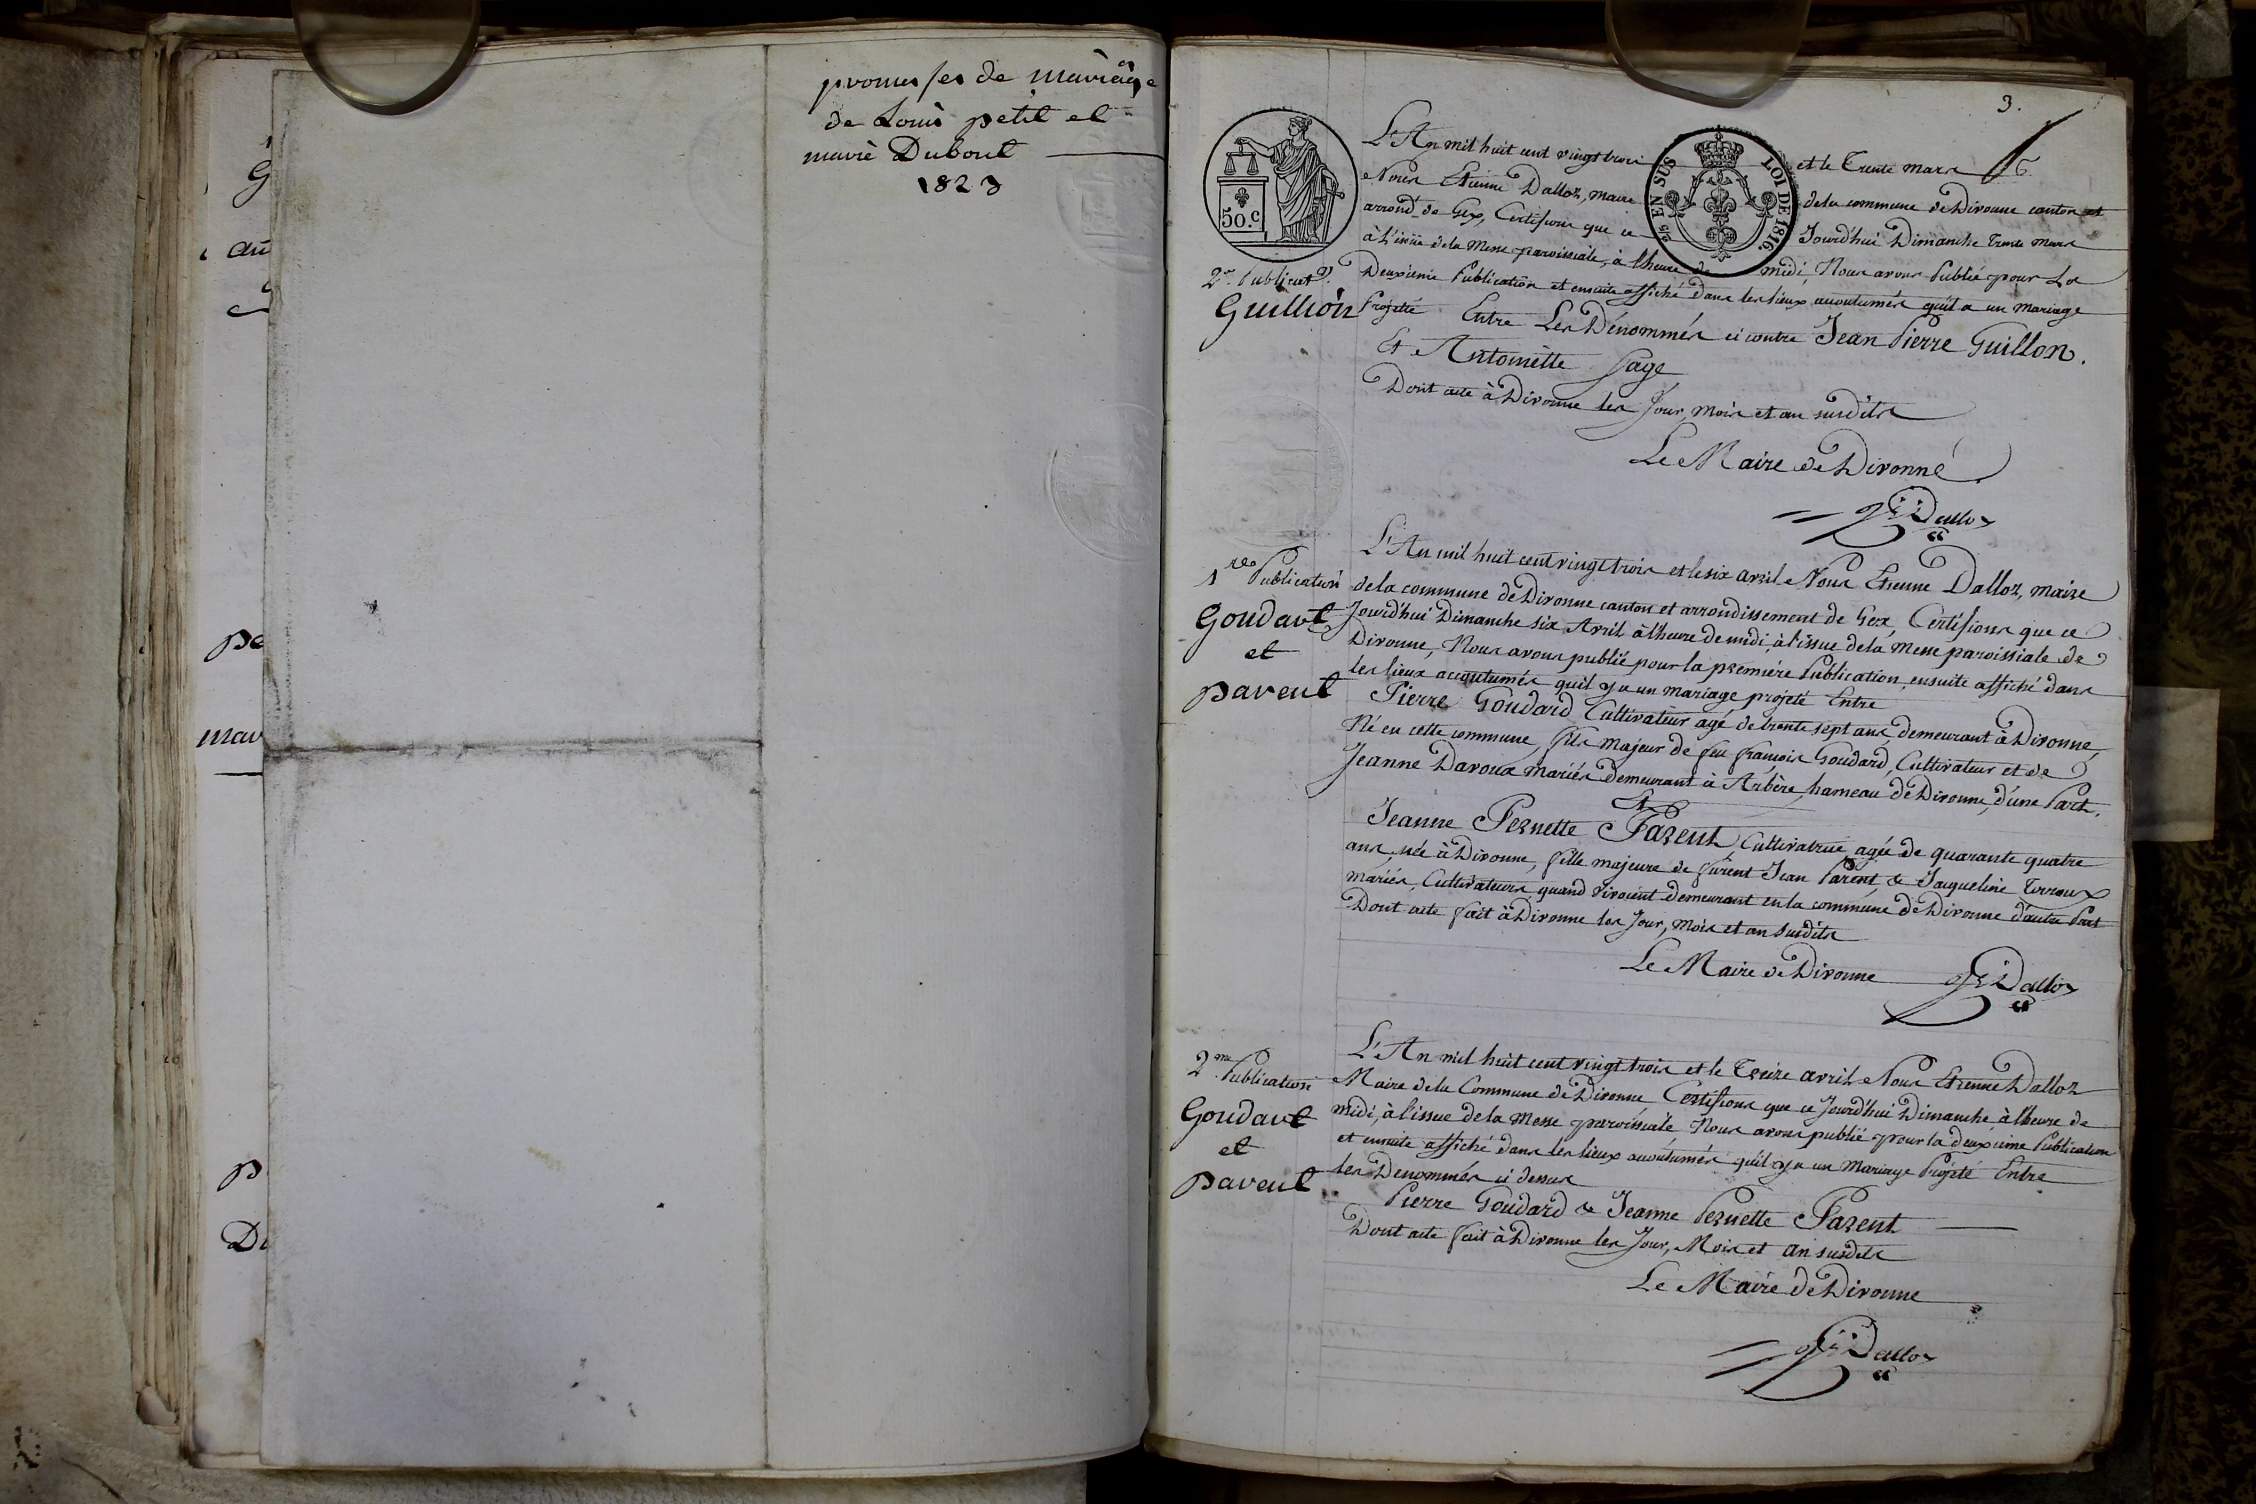 promesses de mariage
de Louis petit et
marie Dubout
1823
G
au
pe
mar
p
Du
3.
6.
50.c
EN SUS
LOI DE 1816.
L'An mil huit cent vingt trois et le Trente mars
Nous Etienne Dalloz, maire de la commune de Divonne canton et
arrond.t de Gex, Certifions que ce Jourd'hui Dimanche trente mars
à l'issüe de la Messe paroissiale, à l'heure de midi, Nous avons Publié pour La
Deuxième Publication et ensuite affiché dans les lieux accoutumés qu'il a un mariage
Projetté Entre Les Dénommés ci contre Jean Pierre Guillon.
Et Antoinette Page
Dont acte à Divonne les Jour, mois et an susdits
Le Maire de Divonne
Dalloz
2.e Publicat.n
Guillion
1.re Publication
Goudart
et
parent
L'An mil huit cent vingt trois et le six avril Nous Etienne Dalloz, maire
de la commune de Divonne canton et arrondissement de Gex, Certifions que ce
Jourd'hui Dimanche six Avril à l'heure de midi, à l'issue de la Messe paroissiale de
Divonne, Nous avons publié pour la première Publication, ensuite affiché dans
les lieux accoutumés qu'il y a un mariage projeté Entre
Pierre Goudard Cultivateur agé de trente sept ans, demeurant à Divonne,
Né en cette commune, fils majeur de feu françois Goudard, Cultivateur et de
Jeanne Daroux mariés demeurant à Arbère, hameau de Divonne, d'une Part.
Et
Jeanne Pernette Parent Cultivatrice agée de quarante quatre
ans, née à Divonne, fille majeure de furent Jean Parent & Jacqueline Terroux
mariés, Cultivateurs, quand vivoient demeurant en la commune de Divonne d'autre Part
Dont acte fait à Divonne les Jour, Mois et an Susdits
Le Maire de Divonne Dalloz
2.me Publication
Goudart
et
parent
L'An mil huit cent vingt trois et le Treize avril Nous Etienne Dalloz
Maire de la Commune de Divonne Certifions que ce Jourd'hui Dimanche, à l'heure de
midi, à l'issue de la Messe paroissiale Nous avons publié pour la deuxième Publication
et ensuite affiché dans les lieux accoutumés qu'il y a un Mariage Projeté Entre
les Denommés ci dessus
Pierre Goudard & Jeanne Pernette Parent
Dont acte fait à Divonne les Jour, Mois et an susdits
Le Maire de Divonne
Dalloz